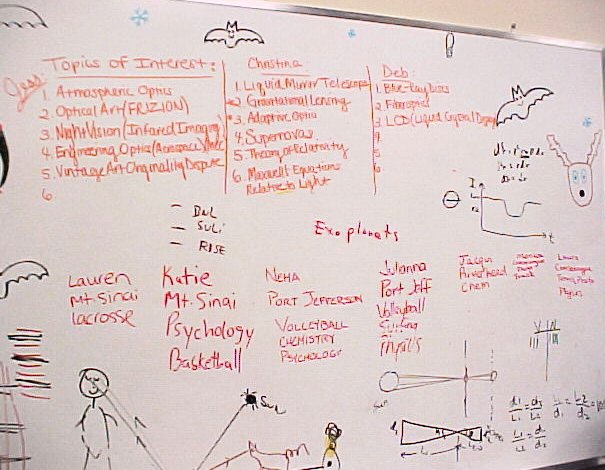 Topics of Interest:
1. Atmospheric Optics
2. Optical Art (FRIZION)
3. Night Vision (Infared Imaging)
4. Engineering Optics (Aerospace)
5. Vintage Art Originality Dispute
6.
Christina
1. Liquid Mirror Telescope
*2 Gravitational Lensing
*3. Adaptive Optics
4. Supernovas
5. Theory of Relativity
6. Maxwell Equations
Relative to Light
Deb:
1. Blue-Ray Discs
2. Fiber optics
3. LCD (Liquid Crystal Display)
4
5
6
- BNL
- SULI
- RISE
Exoplanets
Lauren
Mt. Sinai
lacrosse
Katie
Mt. Sinai
Psychology
Basketball
NEHA
PORT JEFFERSON
VOLLEYBALL
CHEMISTRY
PSYCHOLOGY
Julianna
Port Jeff
Volleyball
Physics
Jacqui
Riverhead
Chem
Laura
Physics
I
t
Y N
Sun